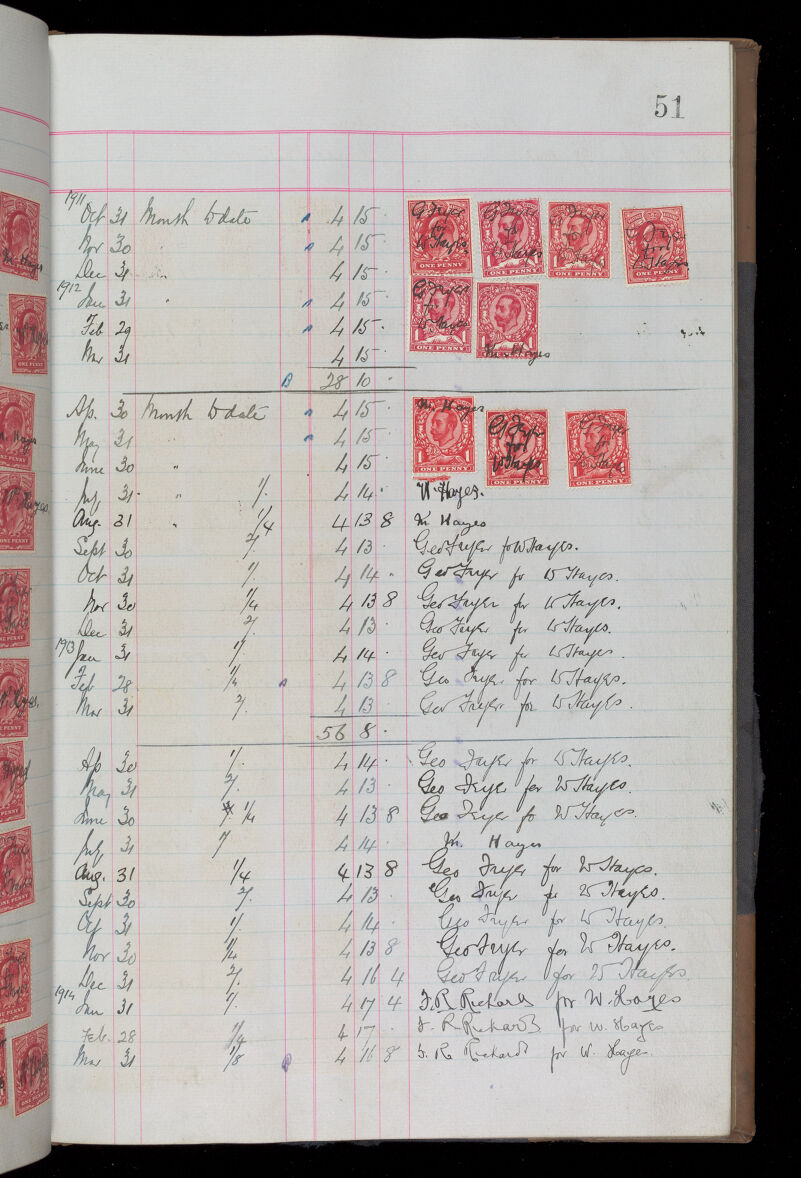 51
1911
Oct 31 Month to date 4 15 . G Fryer for W Hayes. G Fryer for W Hayes G Fryer for W Hayes G Fryer for W Hayes
ONE PENNY 1 ONE PENNY 1 1 ONE PENNY 1 ONE PENNY
Nov 30 " 4 15 .
Dec 31 " 4 15 .
1912
Jan 31 " 4 15 . G Fryer for W Hayes
Feb 29 4 15 .
Mar 31 4 15 Wm Hayes
1 ONE PENNY 1 1 ONE PENNY
28 10 .
Ap. 30 Month to date 4 15 . Wm Hayes G Fryer for W Hayes G Fryer for W Hayes
May 31 " 4 15 .
June 30 " 4 15
1 ONE PENNY 1 ONE PENNY 1 ONE PENNY
July 31 " 1/. 4 14 . W. Hayes.
Aug. 31 " 1/4 4 13 8 Wm Hayes
Sept 30 2/. 4 13 . Geo Fryer for W Hayes.
Oct 31 1/. 4 14 . Geo Fryer for W Hayes.
Nov 30 1/4 4 13 8 Geo Fryer for W Hayes.
Dec 31 2/. 4 13 . Geo Fryer for W Hayes.
1913
Jan 31 1/. 4 14 . Geo Fryer for W Hayes.
Feb 28 1/4 4 13 8 Geo Fryer for W Hayes.
Mar 31 2/. 4 13 . Geo Fryer for W Hayes.
56 8 .
Ap 30 1/. 4 14 . Geo Fryer for W Hayes.
May 31 2/. 4 13 . Geo Fryer for W Hayes.
June 30 1/4 4 13 8 Geo Fryer for W Hayes.
July 31 4 14 . Wm. Hayes
Aug. 31 1/4 4 13 8 Geo Fryer for W Hayes.
Sept 30 2/. 4 13 . Geo Fryer for W Hayes.
Oct 31 1/. 4 14 . Geo Fryer for W Hayes.
Nov 30 1/4 4 13 8 Geo Fryer for W Hayes.
Dec 31 2/. 4 16 4 Geo Fryer for W Hayes.
1914
Jan 31 1/. 4 17 4 F. R Richards for W. Hayes
Feb. 28 1/4 4 17 . F. R Richards for W. Hayes
Mar 31 1/8 4 16 8 F. R. Richards for W. Hayes.